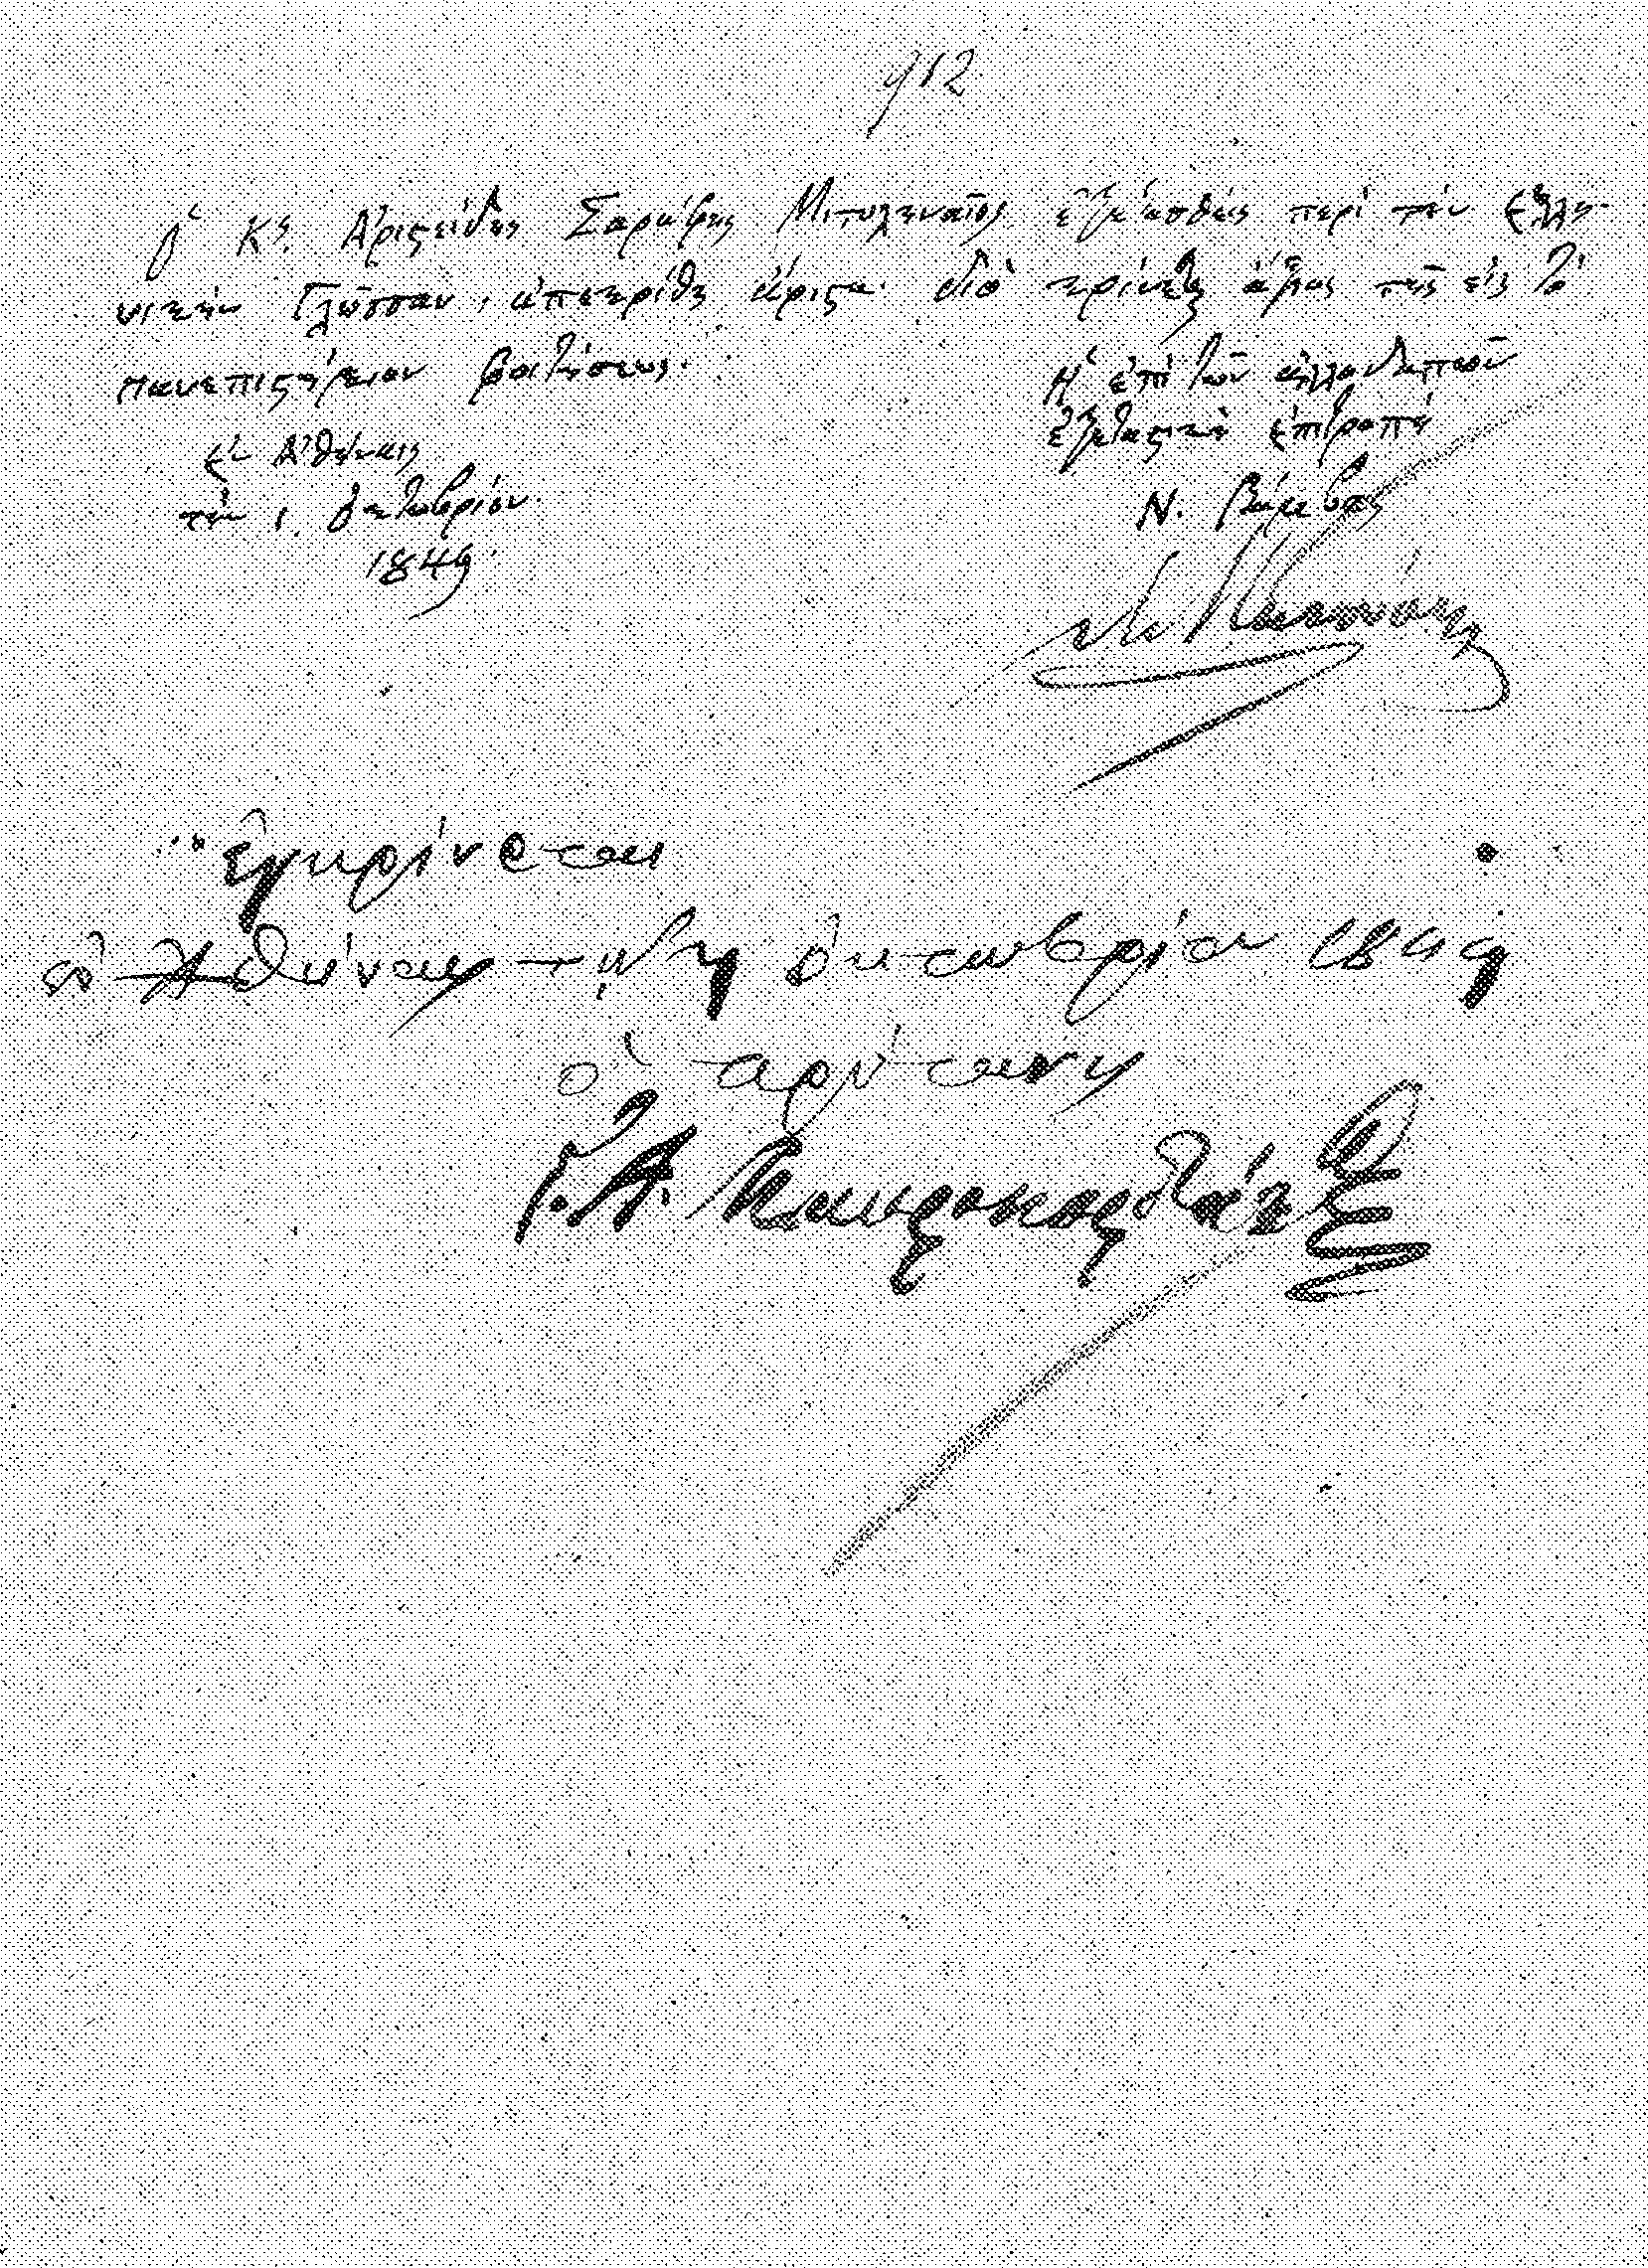 912
Ὁ Κς. Ἀριστείδης Σαράβης Μιτυληναῖος ἐξετασθεὶς περὶ τὴν Ἑλλη-
νικὴν Γλῶσσαν, ἀπεκρίθη ἄριστα· διὸ κρίνεται ἄξιος τῆς εἰς τὸ
πανεπιστήμιον φοιτήσεως.
Ἐν Ἀθήναις
τὴν 1 Ὀκτωβρίου
1849.
Ἡ ἐπὶ τῶν ἀλλοδαπῶν
ἐξεταστικὴ ἐπιτροπὴ
Ν. Βάμβας
ἐγκρίνεται
ἐν Ἀθήναις τῇ Ὀκτωβρίου 1849
ὁ πρύτανις
Γ. Α. Μαυροκορδάτος